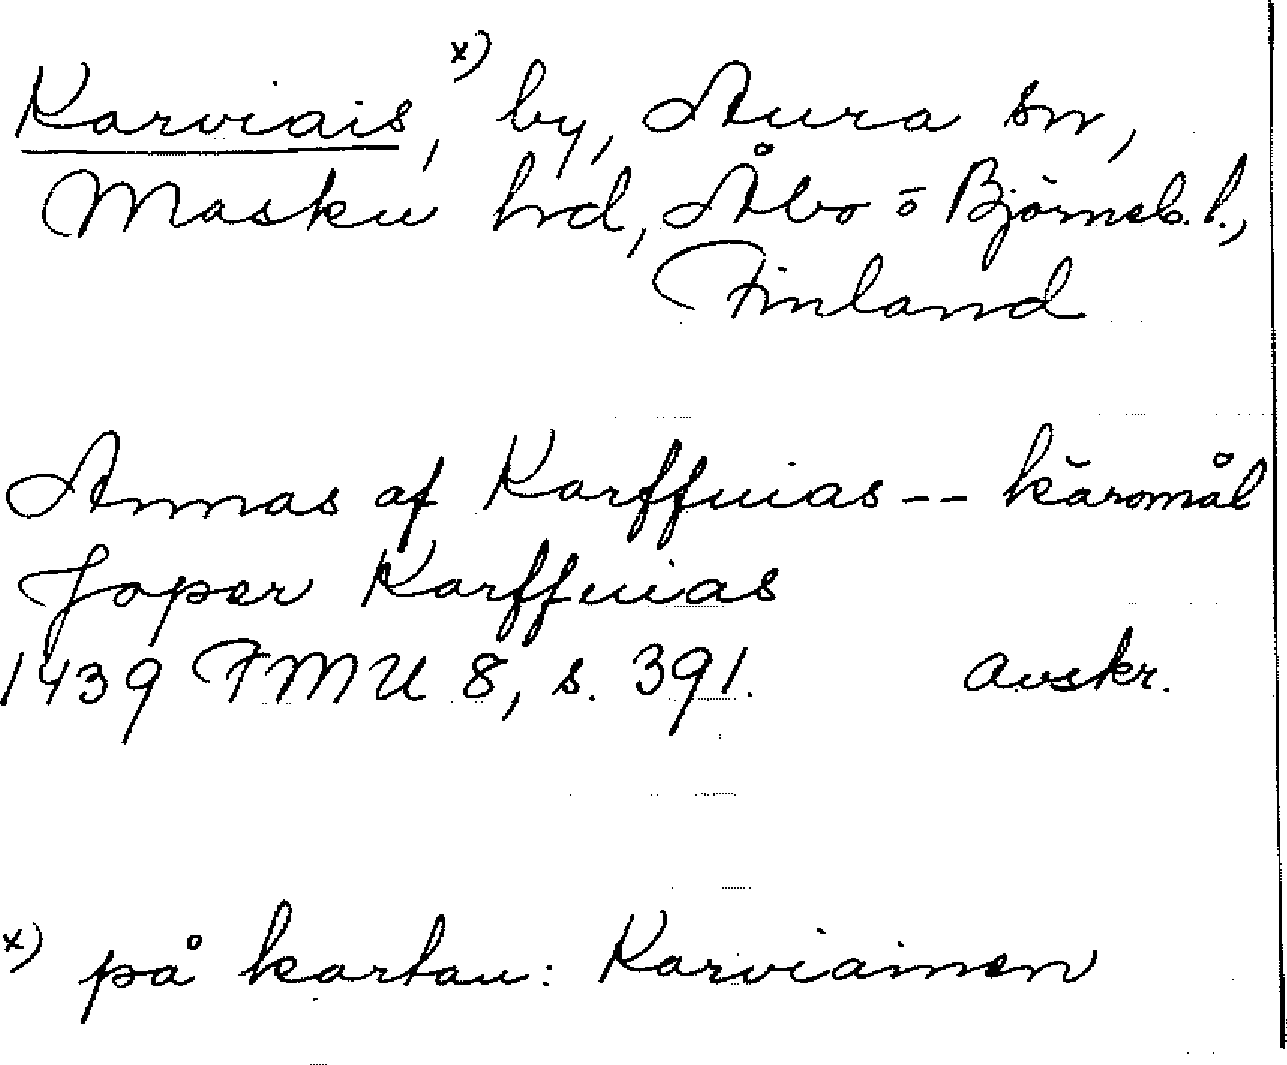 Karviais, x) by, Aura sn,
Masku hrd, Åbo o Björneb. l.,
Finland
Annas af Karffuias -- käromål
Joper Karffuias
1439 FMU 8, s. 391. avskr.
x) på kartan: Karviainen